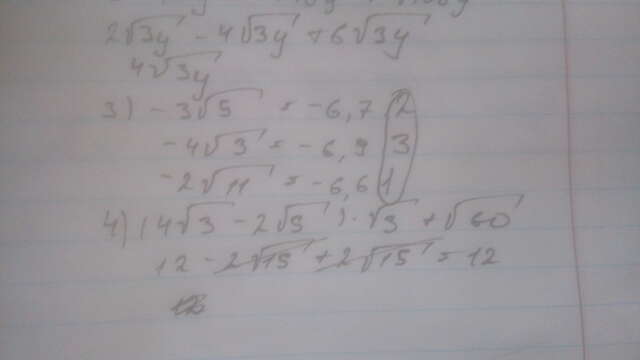 2√3y - 4√3y + 6√3y
4√3y
3) - 3√5 = -6,7 2
-4√3 = -6,9 3
-2√11 = -6,6 1
4) (4√3 - 2√5) · √3 + √60
12 - 2√15 + 2√15 = 12